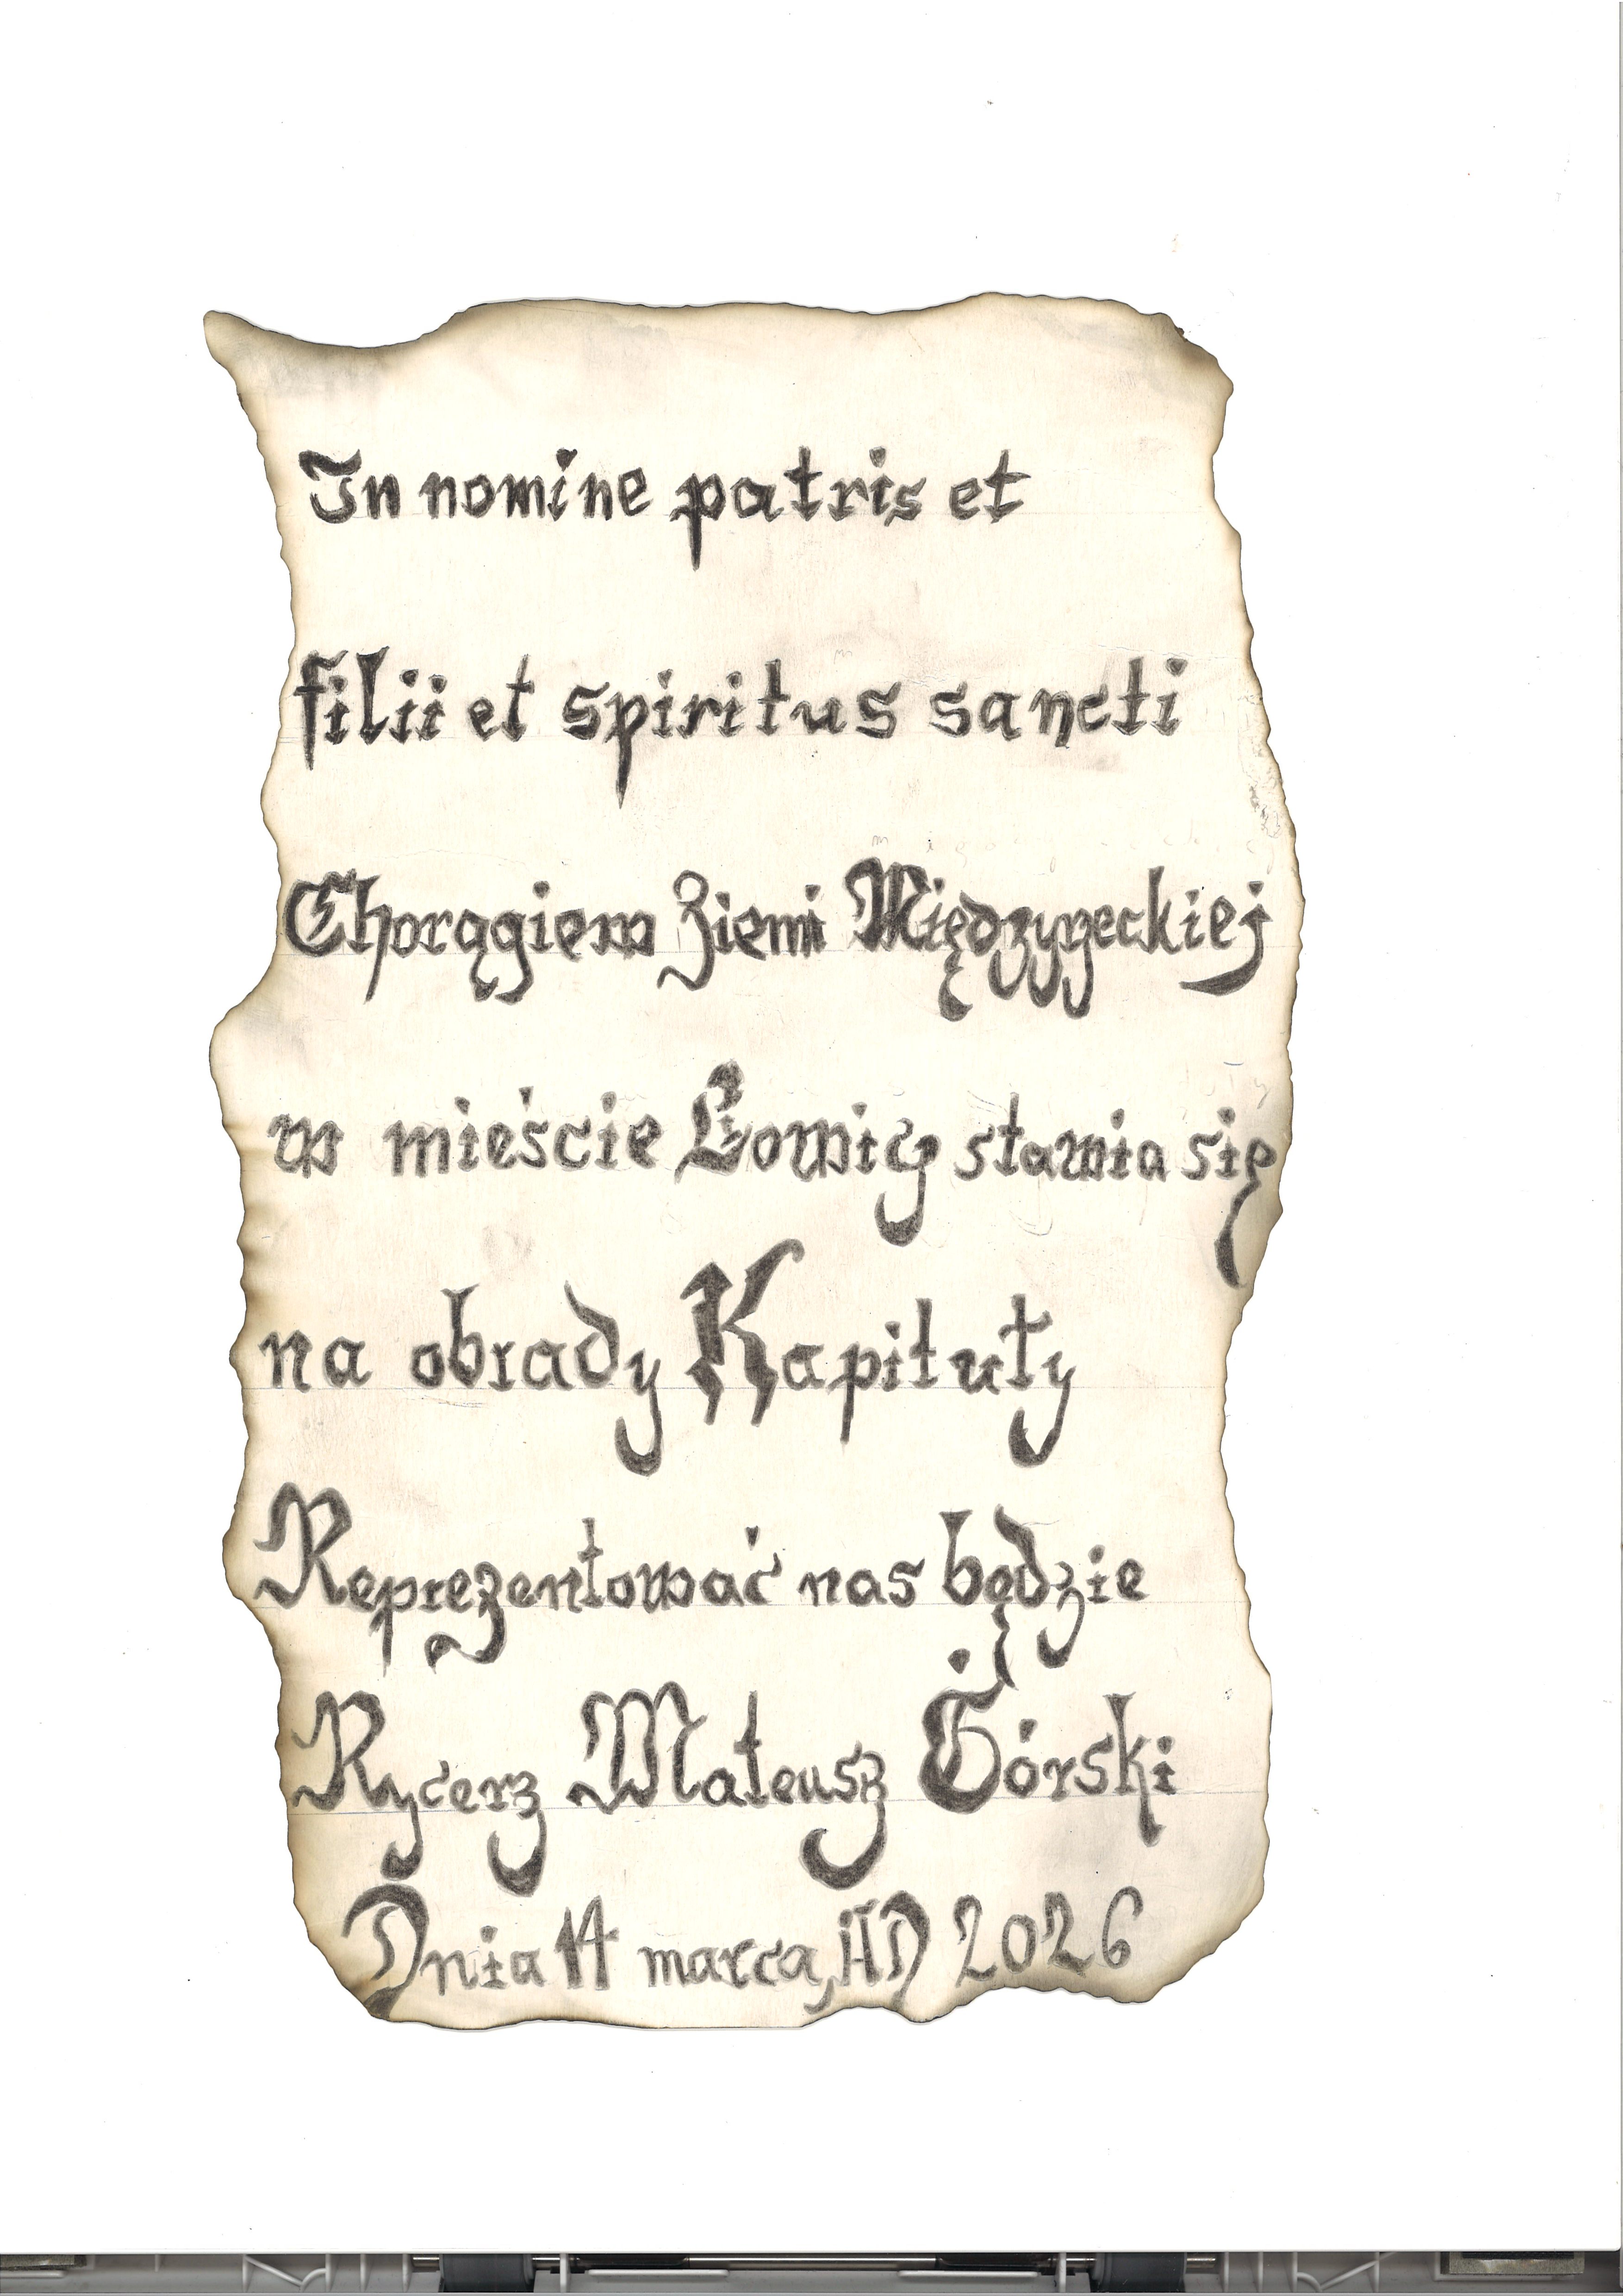 In nomine patris et
filii et spiritus sancti
Chorągiew Ziemi Międzyrzeckiej
w mieście Łowicz stawia się
na obrady Kapituły
Reprezentować nas będzie
Rycerz Mateusz Górski
Dnia 14 marca, AD 2026